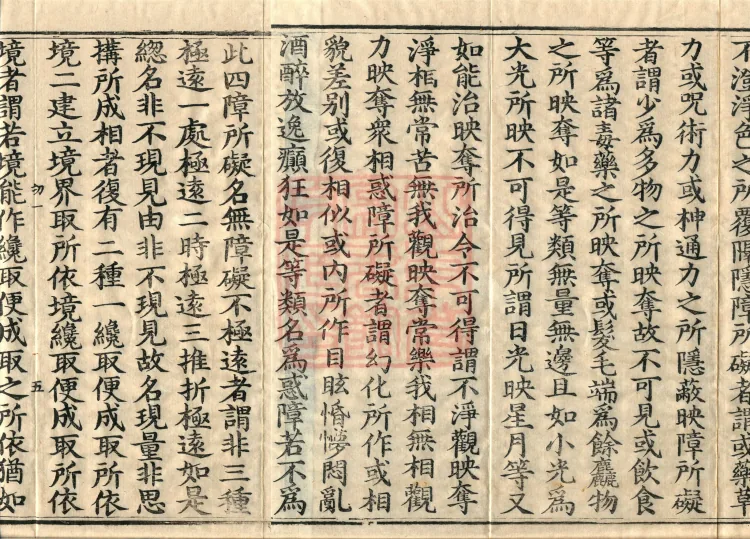 不澄淨色之所覆障隱障所礙者謂或藥草
力或呪術力或神通力之所隱蔽映障所礙
者謂少爲多物之所映奪故不可見或飲食
等爲諸毒藥之所映奪或髮毛端爲餘麤物
之所映奪如是等類無量無邊且如小光爲
大光所映不可得見所謂日光映星月等又
如能治映奪所治令不可得謂不淨觀映奪
淨相無常苦無我觀映奪常樂我相無相觀
力映奪衆相惑障所礙者謂幻化所作或相
貌差別或復相似或内所作目眩惛懵悶亂
酒醉放逸癲狂如是等類名爲惑障若不爲
此四障所礙名無障礙不極遠者謂非三種
極遠一處極遠二時極遠三推折極遠如是
緫名非不現見由非不現見故名現量非思
搆所成相者復有二種一纔取便成取所依
境二建立境界取所依境纔取便成取所依
五
境者謂若境能作纔取便成取之所依猶如